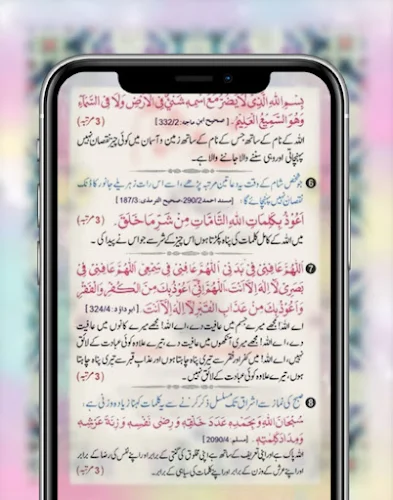 بِسْمِ اللّٰهِ الَّذِي لَا يَضُرُّ مَعَ اسْمِهٖ شَيْءٌ فِي الْاَرْضِ وَلَا فِي السَّمَآءِ
وَهُوَ السَّمِيْعُ الْعَلِيْمُ۔ [صحیح ابن ماجہ: 332/2] (3 مرتبہ)
اللہ کے نام کے ساتھ جس کے نام کے ساتھ زمین و آسمان میں کوئی چیز نقصان نہیں
پہنچاتی اور وہی سننے والا جاننے والا ہے۔
6 جو شخص شام کے وقت یہ دعا تین مرتبہ پڑھے، اسے اس رات زہریلے جانور کا ڈنک
نقصان نہیں پہنچائے گا۔ [مسند احمد: 290/2، صحیح الترمذی: 187/3]
اَعُوْذُ بِكَلِمَاتِ اللّٰهِ التَّامَّاتِ مِنْ شَرِّ مَا خَلَقَ۔ (3 مرتبہ)
میں اللہ کے کامل کلمات کی پناہ پکڑتا ہوں اس چیز کے شر سے جو اس نے پیدا کی۔
7 اَللّٰهُمَّ عَافِنِيْ فِيْ بَدَنِيْ اَللّٰهُمَّ عَافِنِيْ فِيْ سَمْعِيْ اَللّٰهُمَّ عَافِنِيْ فِيْ
بَصَرِيْ لَا اِلٰهَ اِلَّا اَنْتَ، اَللّٰهُمَّ اِنِّيْ اَعُوْذُ بِكَ مِنَ الْكُفْرِ وَالْفَقْرِ
وَاَعُوْذُ بِكَ مِنْ عَذَابِ الْقَبْرِ لَا اِلٰهَ اِلَّا اَنْتَ۔ [ابو داؤد: 324/4]
اے اللہ! مجھے میرے جسم میں عافیت دے، اے اللہ! مجھے میرے کانوں میں عافیت
دے، اے اللہ! مجھے میری آنکھوں میں عافیت دے، تیرے علاوہ کوئی عبادت کے لائق
نہیں، اے اللہ! میں کفر اور فقر سے تیری پناہ چاہتا ہوں اور عذاب قبر سے تیری پناہ چاہتا
ہوں، تیرے علاوہ کوئی عبادت کے لائق نہیں۔ (3 مرتبہ)
8 صبح کی نماز سے اشراق تک مسلسل ذکر کرنے سے یہ کلمات کہنا زیادہ وزنی ہے،
سُبْحَانَ اللّٰهِ وَبِحَمْدِهٖ عَدَدَ خَلْقِهٖ وَرِضٰى نَفْسِهٖ وَزِنَةَ عَرْشِهٖ
وَمِدَادَ كَلِمَاتِهٖ۔ [مسلم: 2090/4]
اللہ پاک ہے اور اپنی تعریف کے ساتھ ہے اپنی مخلوق کی گنتی کے برابر اور اپنے نفس کی رضا کے برابر
اور اپنے عرش کے وزن کے برابر اور اپنے کلمات کی سیاہی کے برابر۔ (3 مرتبہ)